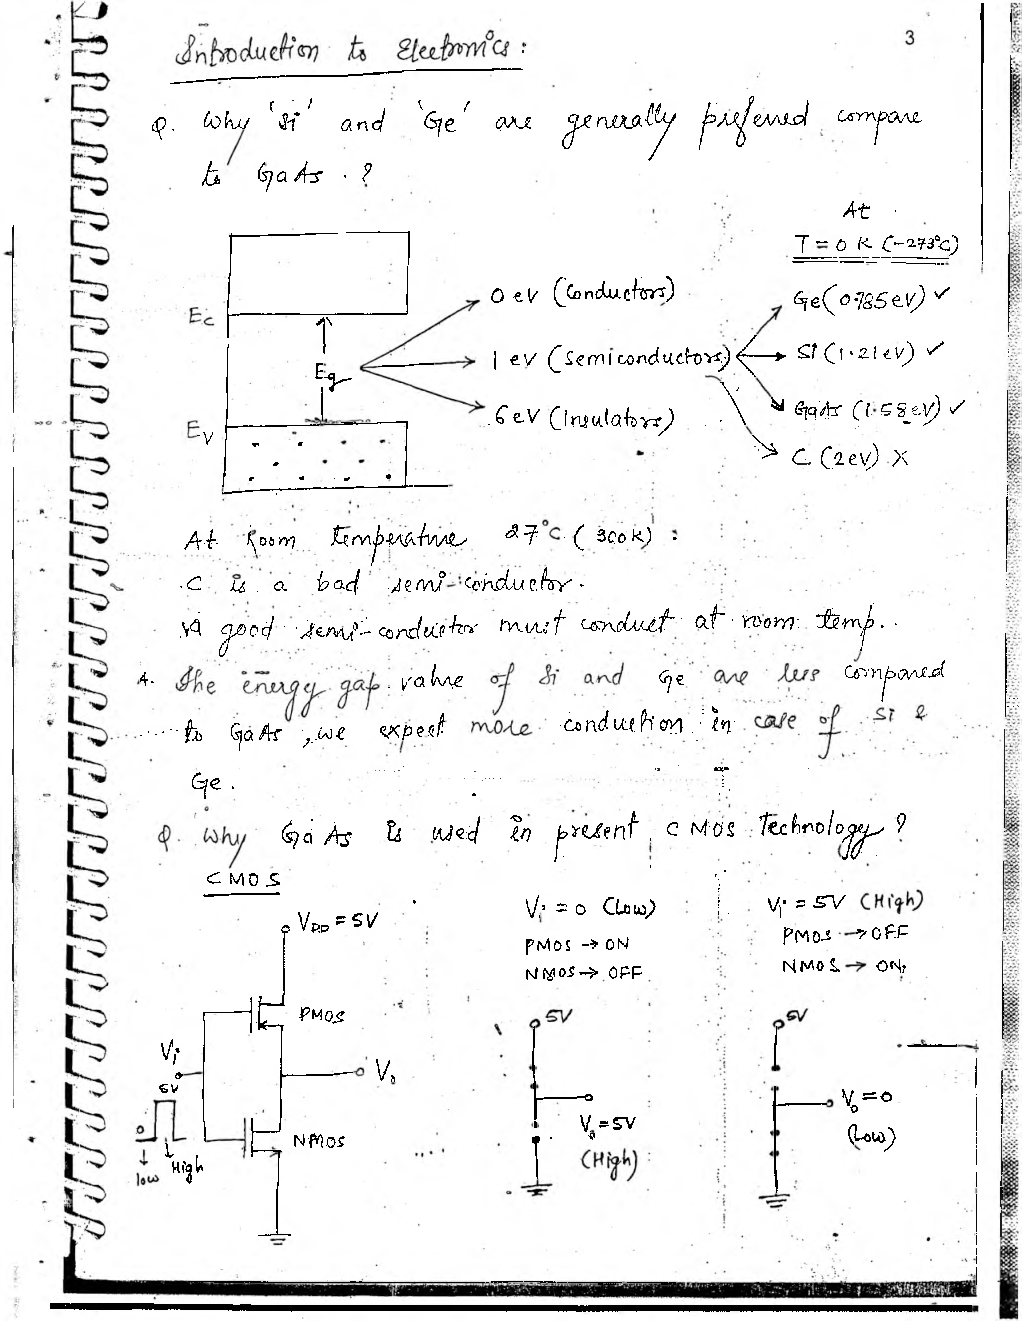 3
Introduction to Electronics :
Q. Why 'Si' and 'Ge' are generally preferred compare
to GaAs . ?
At
T = 0 K (-273°C)
0 ev (Conductors)
1 ev (Semiconductors)
6 eV (Insulators)
Ge (0.785 eV) ✓
Si (1.21 eV) ✓
GaAs (1.58 eV) ✓
C (2 eV) X
Ec
Eg
Ev
At Room temperature 27°C (300K) :
C is a bad semi-conductor.
A good semi-conductor must conduct at room temp.
A. The energy gap value of Si and Ge are less compared
to GaAs, we expect more conduction in case of Si &
Ge.
Q. Why GaAs is used in present CMOS Technology ?
CMOS
VDD = 5V
PMOS
Vi
5V
0
low
High
NMOS
Vo
Vi = 0 (Low)
PMOS → ON
NMOS → OFF
5V
Vo = 5V
(High)
Vi = 5V (High)
PMOS → OFF
NMOS → ON
5V
Vo = 0
(Low)